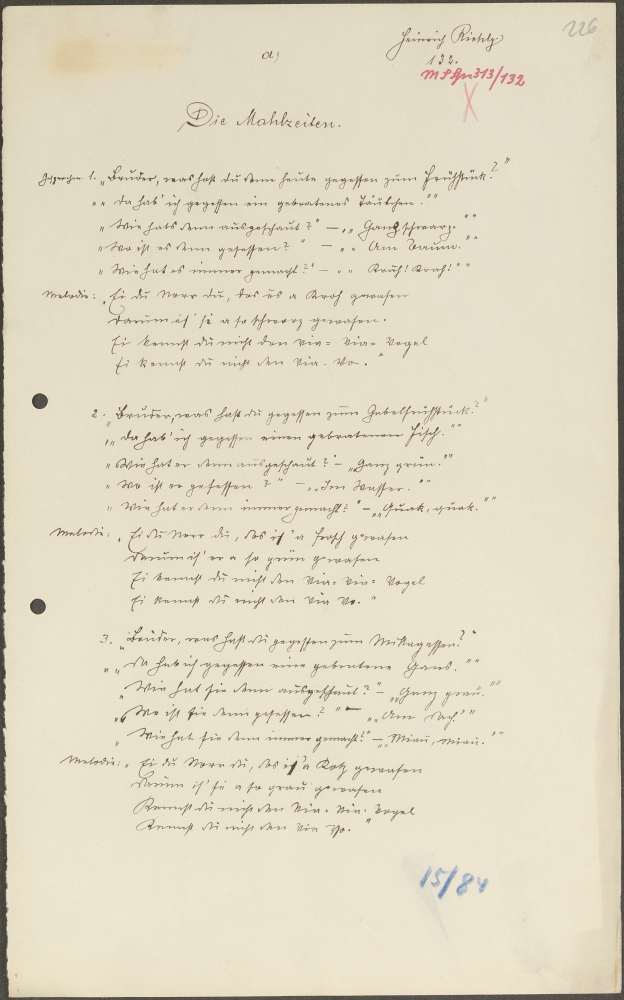 226
Heinrich
a)
132.
313/132
Die Mahlzeiten.
Gesprochen 1. „Bruder, was hast du denn heute gegessen zum Frühstück?"
„„Da hab' ich gegessen ein gebratenes Täubchen.""
„Wie hats denn ausgeschaut?" – „„Ganz schwarz.""
„Wo ist es denn gesessen?" – „„Am Baum.""
„Wie hat es immer gemacht?" – „„Krah! Krah!""
Melodie: „Ei du Narr du, das is a Kroh gewesen
Darum is' sie a so schwarz gewesen.
Ei kennst du nicht den Via- Via- Vogel
Ei kennst du nicht den Via- Vo-."
2. „Bruder, was hast du gegessen zum Gabelfrühstück?"
„„Da hab' ich gegessen einen gebratenen Fisch.""
„Wie hat er denn ausgeschaut?" – „„Ganz grün.""
„Wo ist er gesessen?" – „„Im Wasser.""
„Wie hat er denn immer gemacht?" – „„Quak, quak.""
Melodie: „Ei du Narr du, das is' a Frosch gewesen
Darum is' er a so grün gewesen
Ei kennst du nicht den Via- Via- Vogel
Ei kennst du nicht den Via Vo-."
3. „Bruder, was hast du gegessen zum Mittagessen?"
„„Da hab ich gegessen eine gebratene Gans.""
„Wie hat sie denn ausgeschaut?" – „„Ganz grau.""
„Wo ist sie denn gesessen?" – „„Am Dach.""
„Wie hat sie denn immer gemacht?" – „„Miau, miau.""
Melodie: „Ei du Narr du, das is' a Katz gewesen
Darum is' sie a so grau gewesen
Kennst du nicht den Via- Via- Vogel
Kennst du nicht den Via Vo-."
15/84